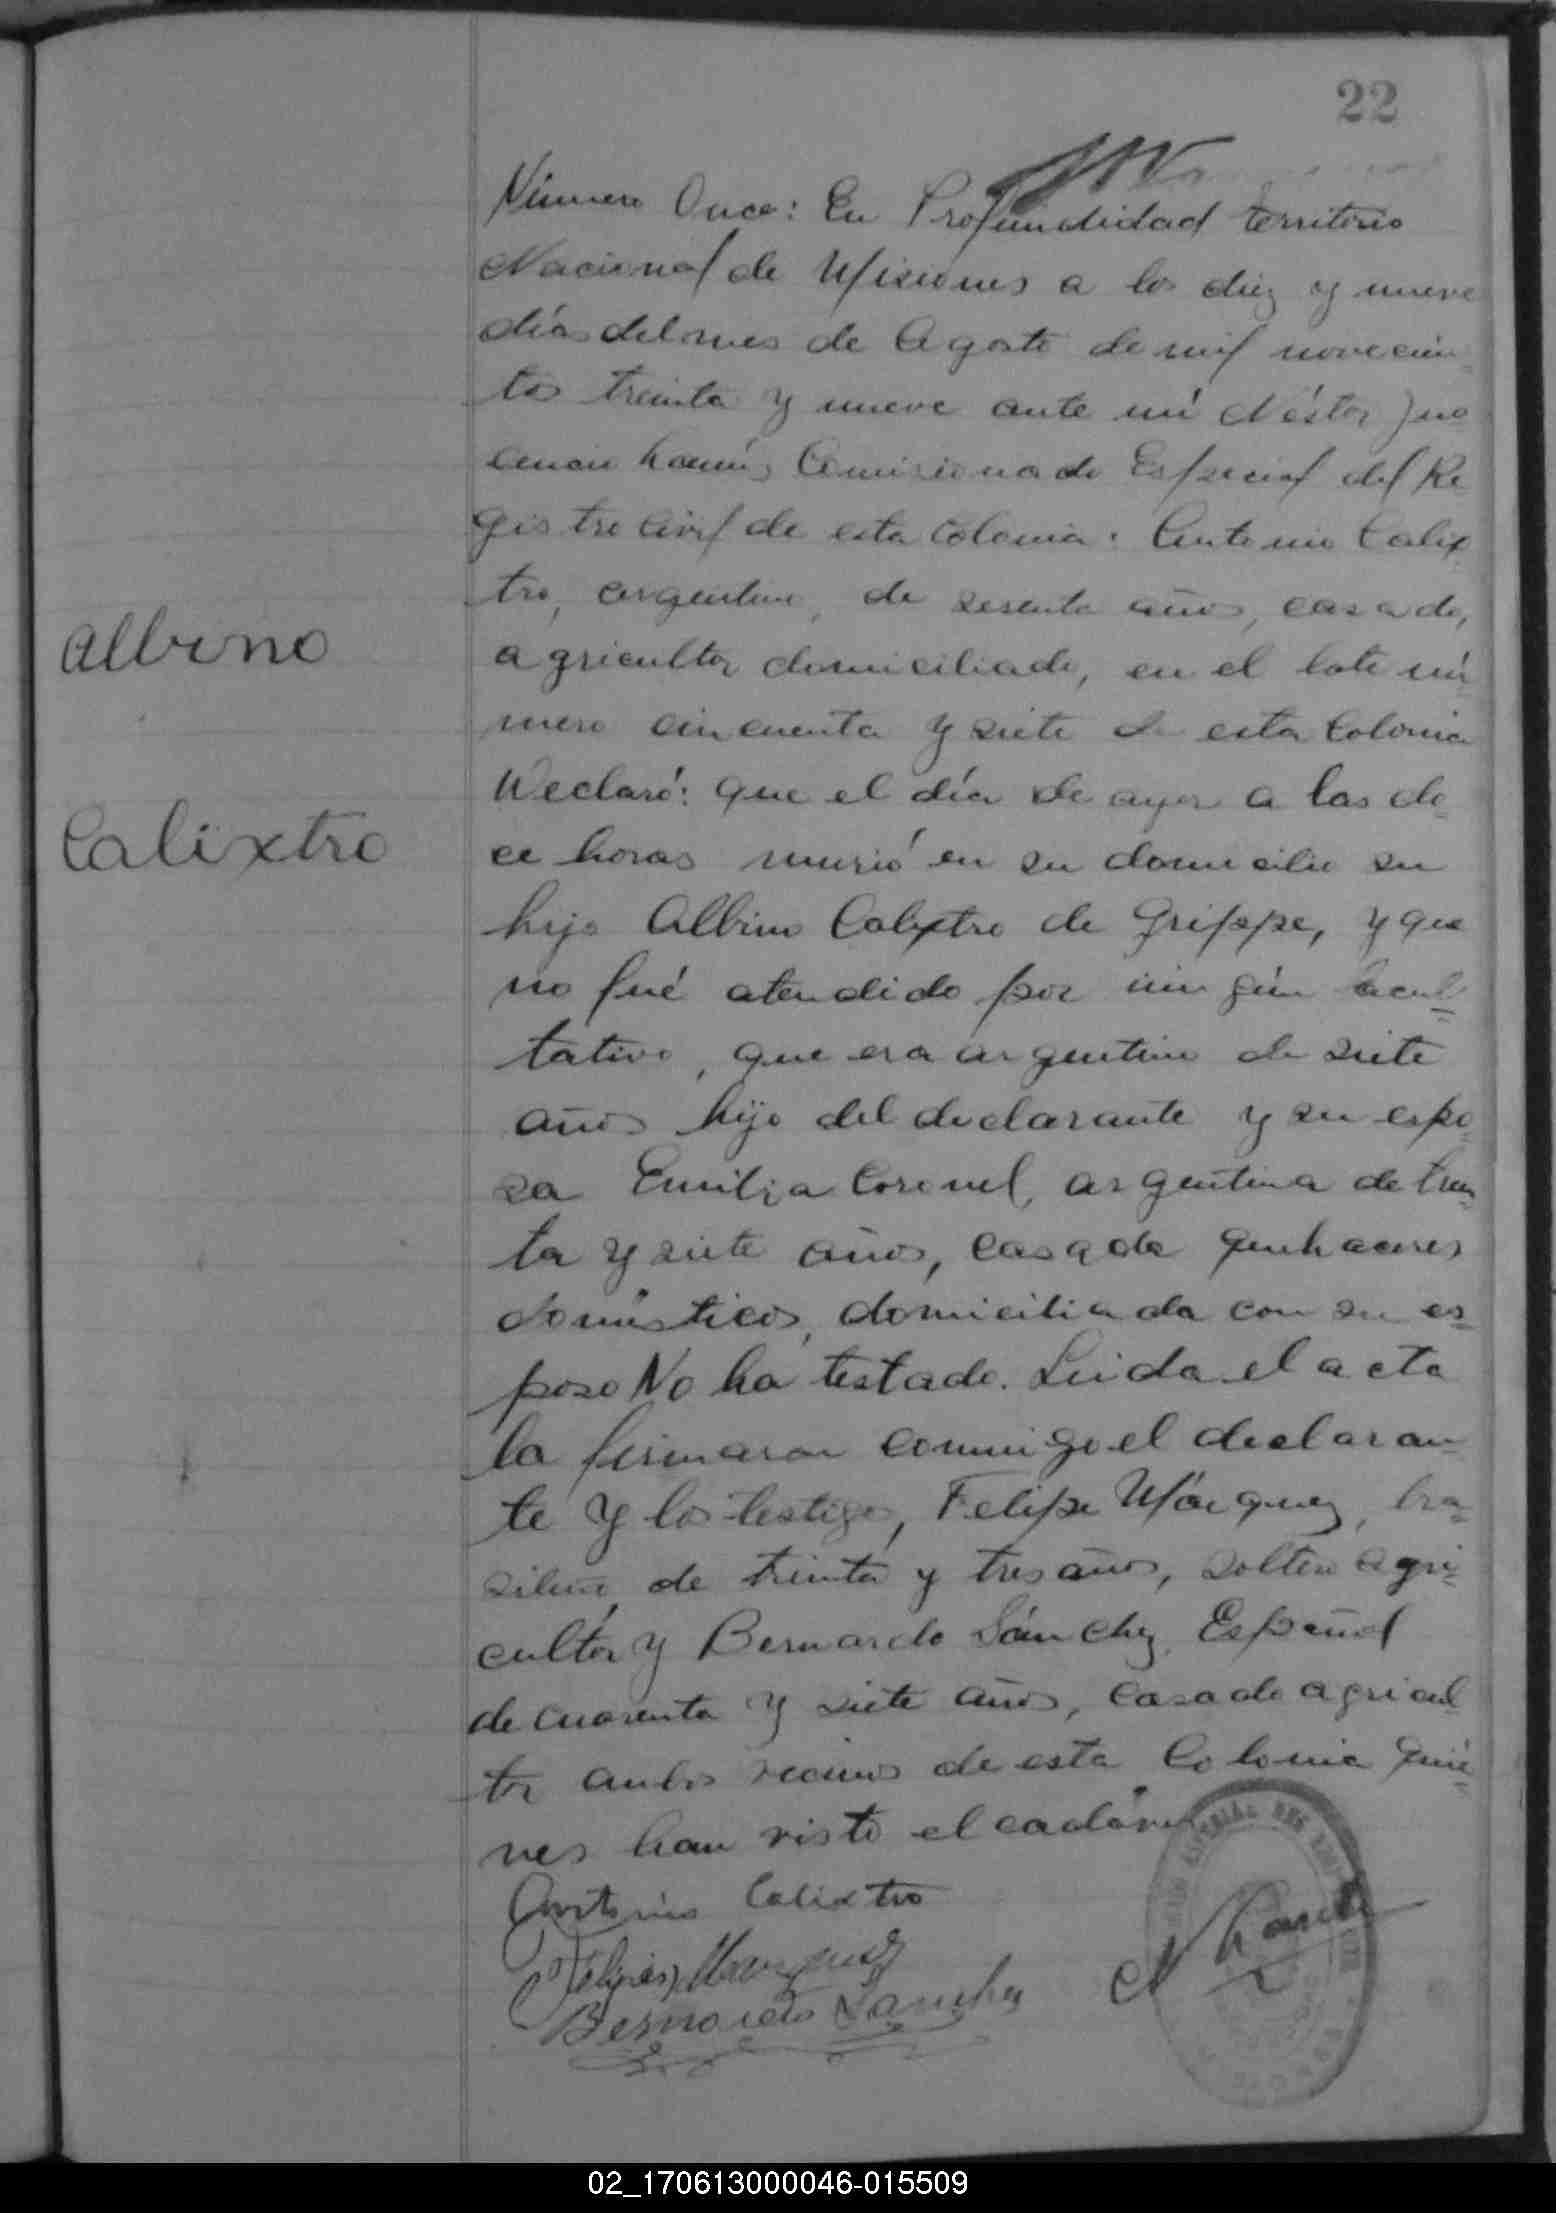 22
Número Once: En Profundidad territorio
Nacional de Misiones a los diez y nueve
días del mes de Agosto de mil novecien-
tos treinta y nueve ante mi Néstor Ino
cencio Comisionado Especial del Re
gistro Civil de esta Colonia: Antonio Calix
tro, argentino, de sesenta años, casado,
agricultor domiciliado, en el lote nú-
mero cincuenta y siete de esta Colonia
Declaró: que el día de ayer a las do-
ce horas murió en su domicilio su
hijo Albino Calixtro de Grippe, y que
no fué atendido por ningún facul-
tativo, que era argentino de siete
años hijo del declarante y su espo-
sa Emilia Coronel, argentina de trein-
ta y siete años, casada quehaceres
domésticos, domiciliada con su es-
poso No ha testado. Leida el acta
la firmaron conmigo el declaran-
te y los testigos, Felipe Márquez, bra-
sileño de treinta y tres años, soltero agri-
cultor y Bernardo Sánchez Español
de cuarenta y siete años, casado agricul-
tor ambos vecinos de esta Colonia quié-
nes han visto el cadáver
Antonio Calixtro
Felipe Marquez
Bernardo Sanchez
Albino
Calixtro
02_170613000046-015509